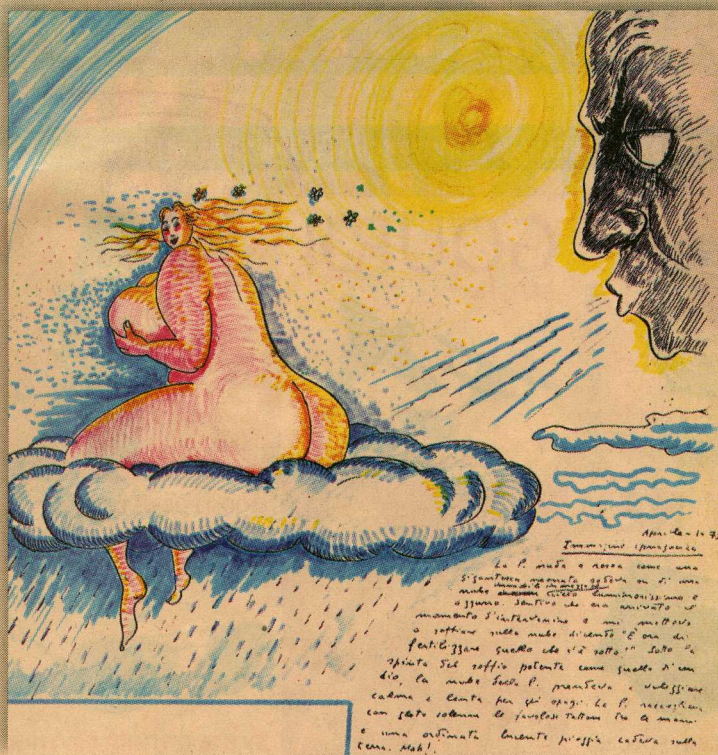 Aprile 1975
Immagine ipnagogica
La P. nuda e rosea come una
gigantesca neonata sedeva su di una
nube immobile in mezzo al cielo luminosissimo e
azzurro. Sentivo che era arrivato il
momento d'intervenire e mi mettevo
a soffiare sulla nube dicendo "È ora di
fertilizzare quello che c'è sotto!" Sotto la
spinta del soffio potente come quello di un
dio, la nube della P. prendeva a veleggiare
calma e lenta per gli spazi. La P. raccoglieva
con gesto solenne le favolose tettone tra le mani
e una ordinata lucente pioggia cadeva sulla
terra. Mah!